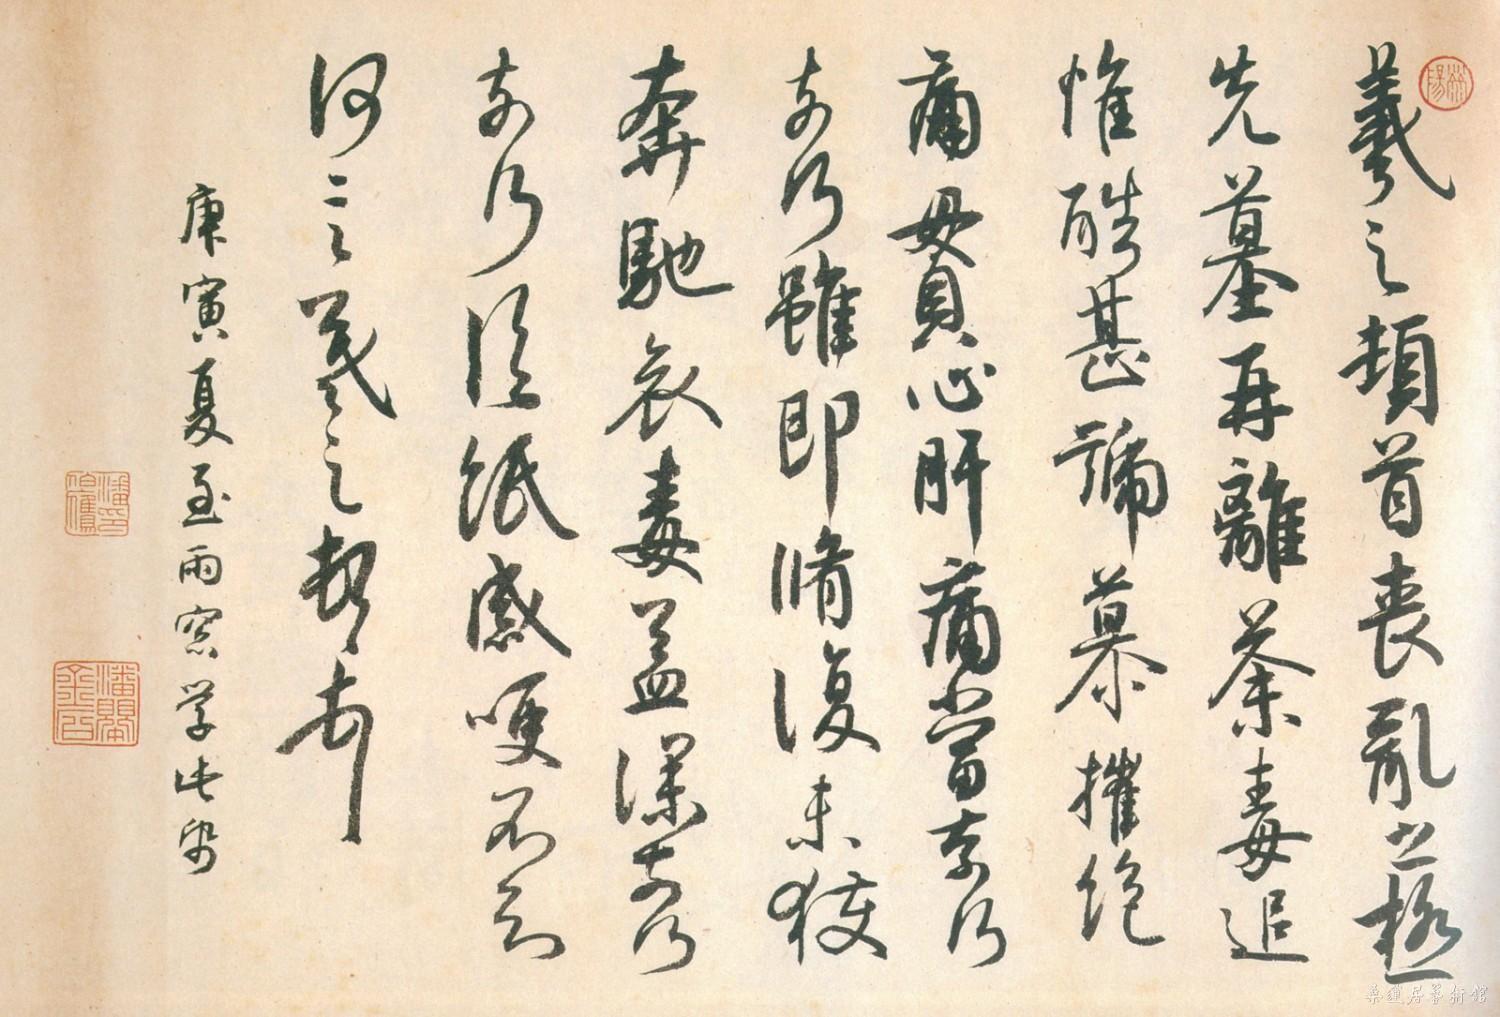 羲之頓首喪亂之極
先墓再離荼毒追
惟酷甚號慕摧絕
痛毌貫心肝痛當奈何
奈何雖即脩復未獲
奔馳哀毒益深奈何
奈何臨紙感哽不知
何言羲之頓首頓首
庚寅夏至雨窗學此帋
潘
潘